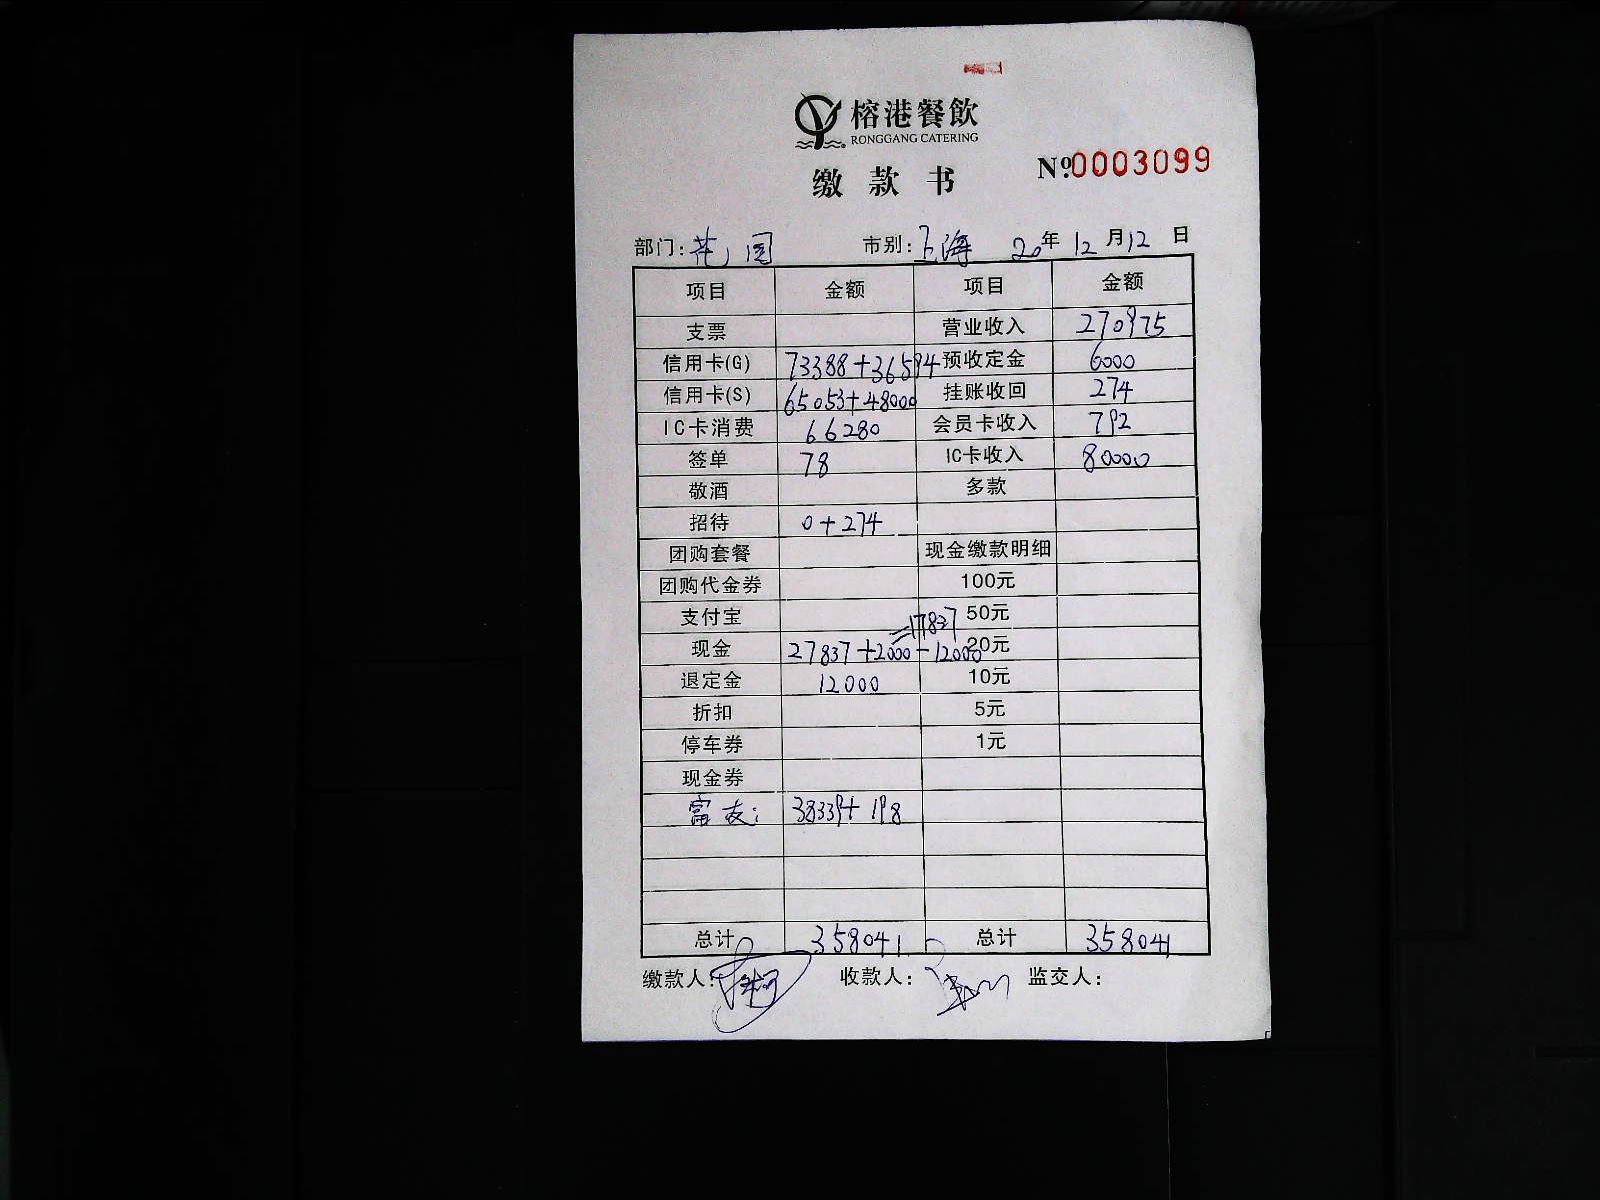 榕港餐飲
RONGGANG CATERING
缴款书 №0003099
部门: 花园 市别: 上海 20年 12月 12日
项目 金额 项目 金额
支票 营业收入 270975
信用卡(G) 73388+36594 预收定金 6000
信用卡(S) 65053+48000 挂账收回 274
IC卡消费 66280 会员卡收入 792
签单 78 IC卡收入 80000
敬酒 多款
招待 0+274
团购套餐 现金缴款明细
团购代金券 100元
支付宝 =17837 50元
现金 27837+2000-12000 20元
退定金 12000 10元
折扣 5元
停车券 1元
现金券
富友: 38339+198
总计 358041 总计 358041
缴款人: 收款人: 监交人: